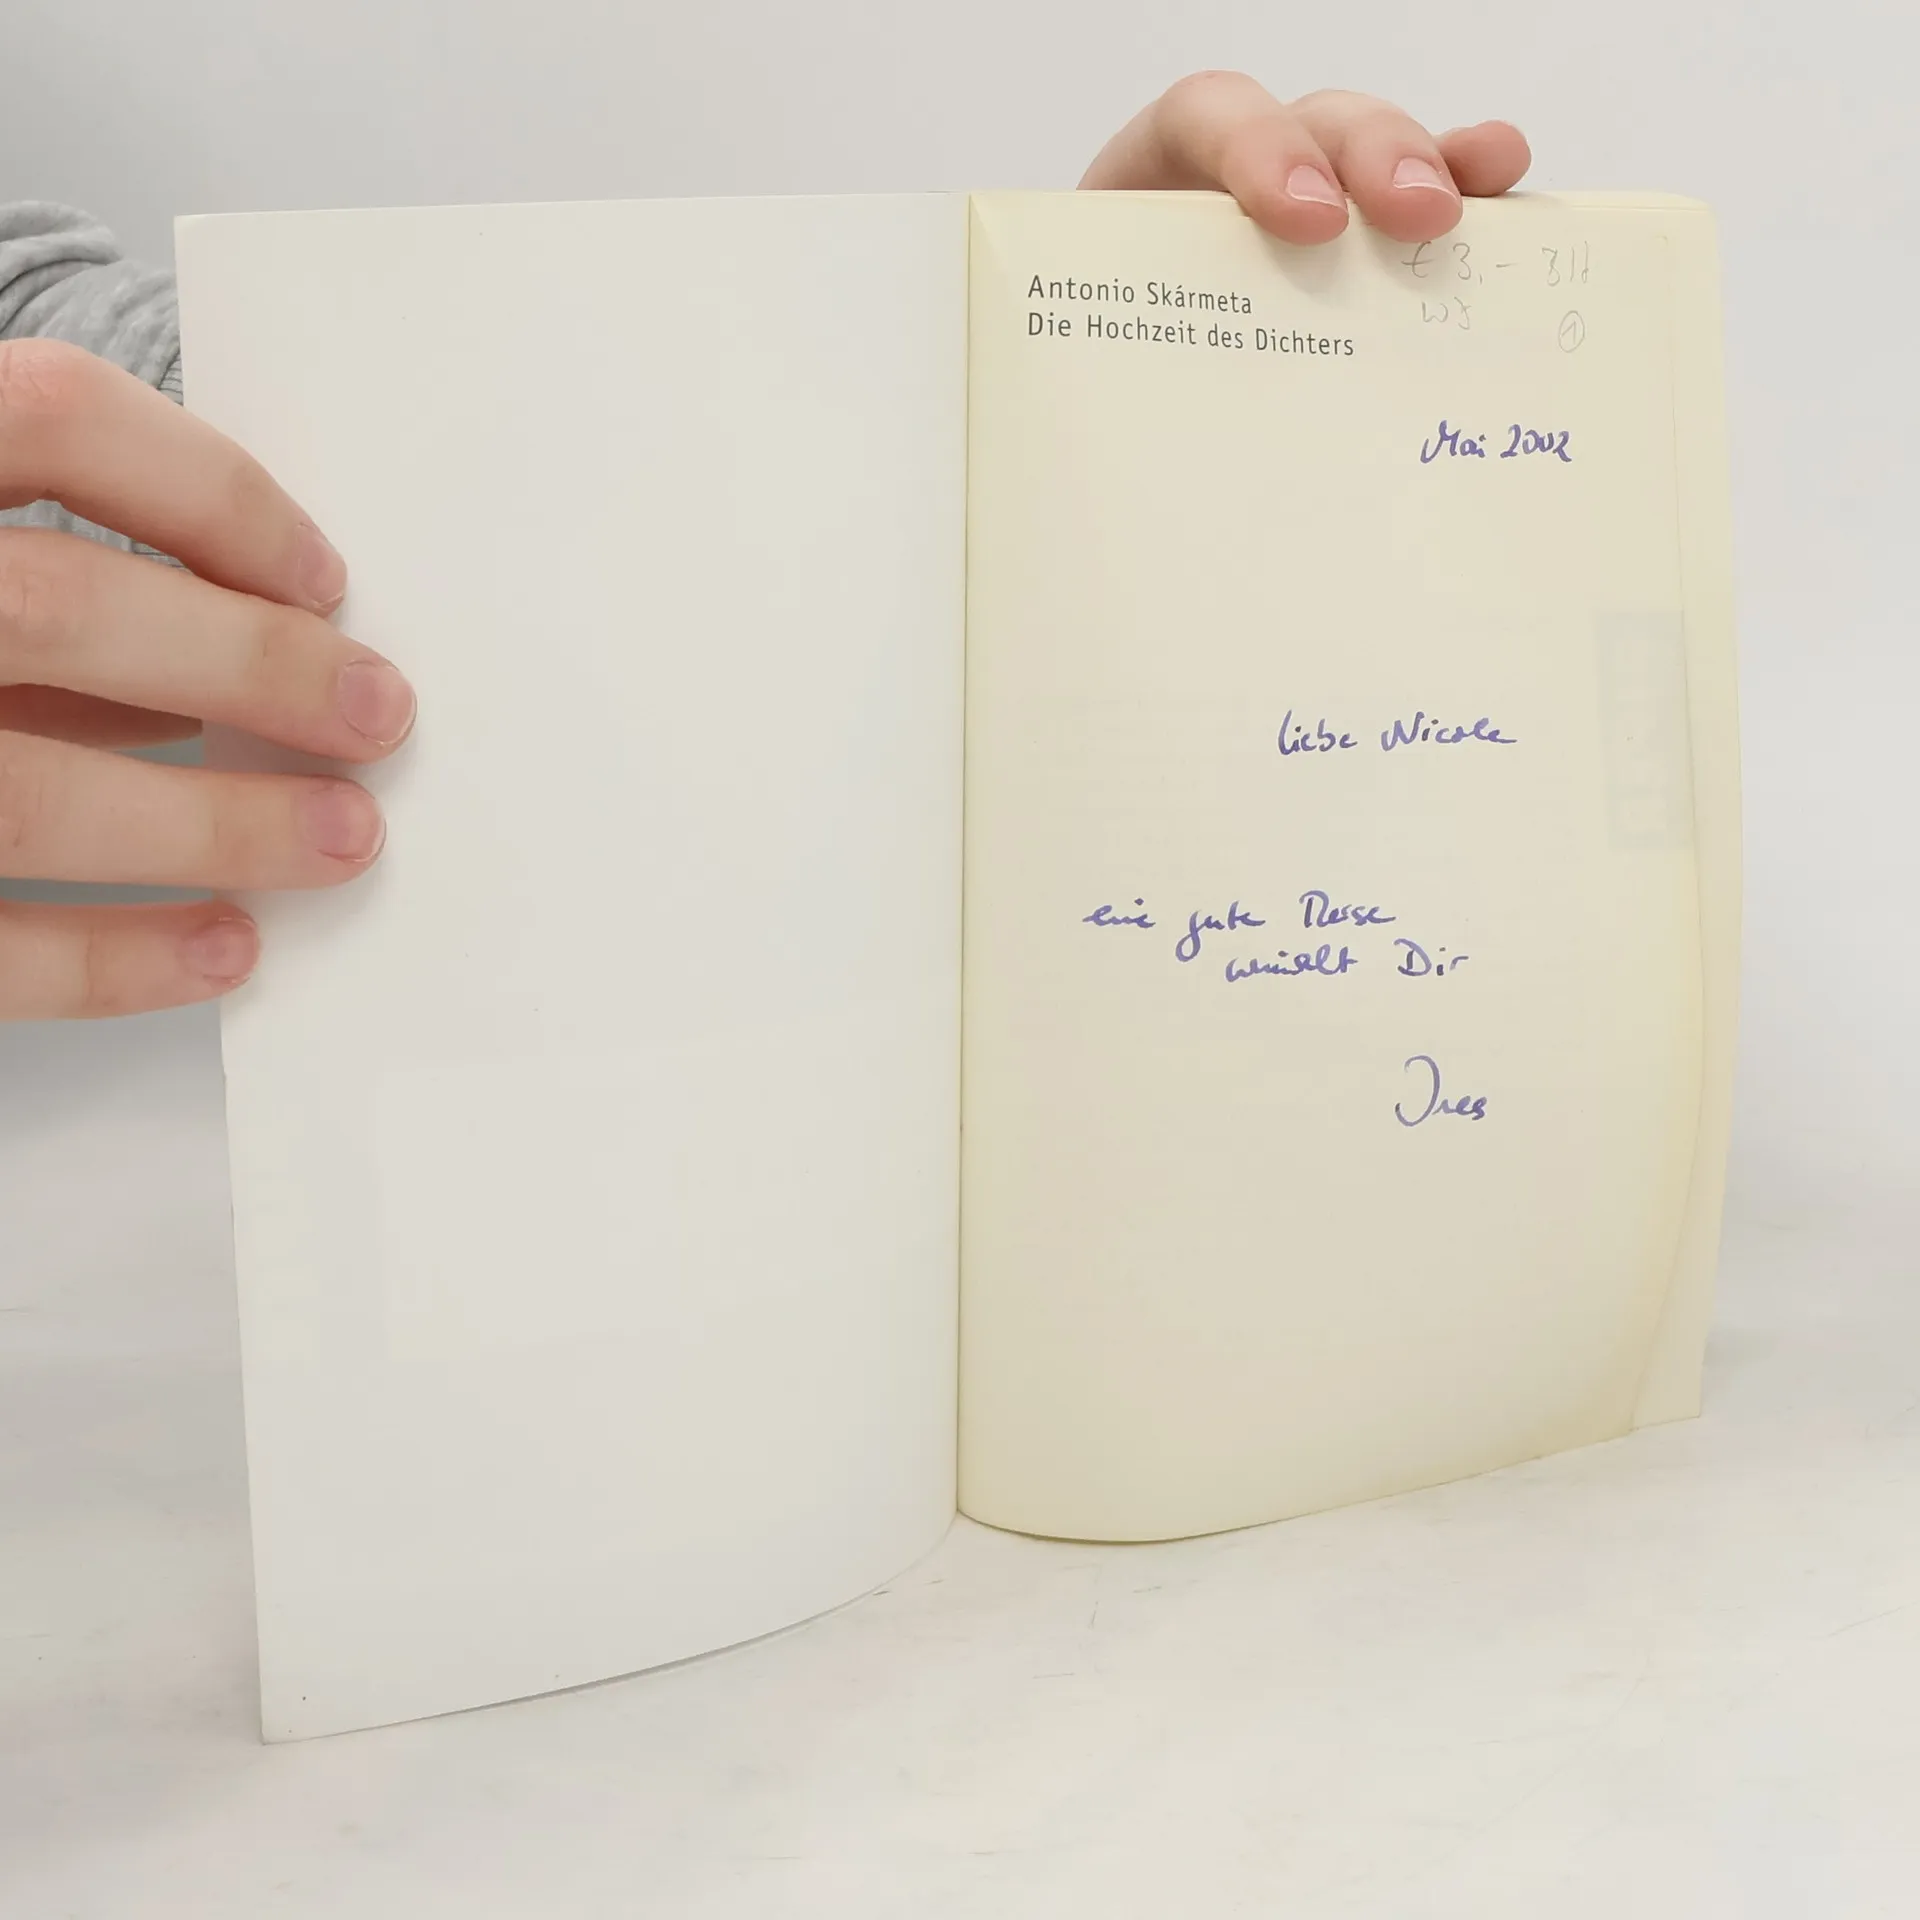 Antonio Skármeta
Die Hochzeit des Dichters
€ 3,-
Mai 2002
liebe Nicole
eine gute Reise
wünscht Dir
Ines